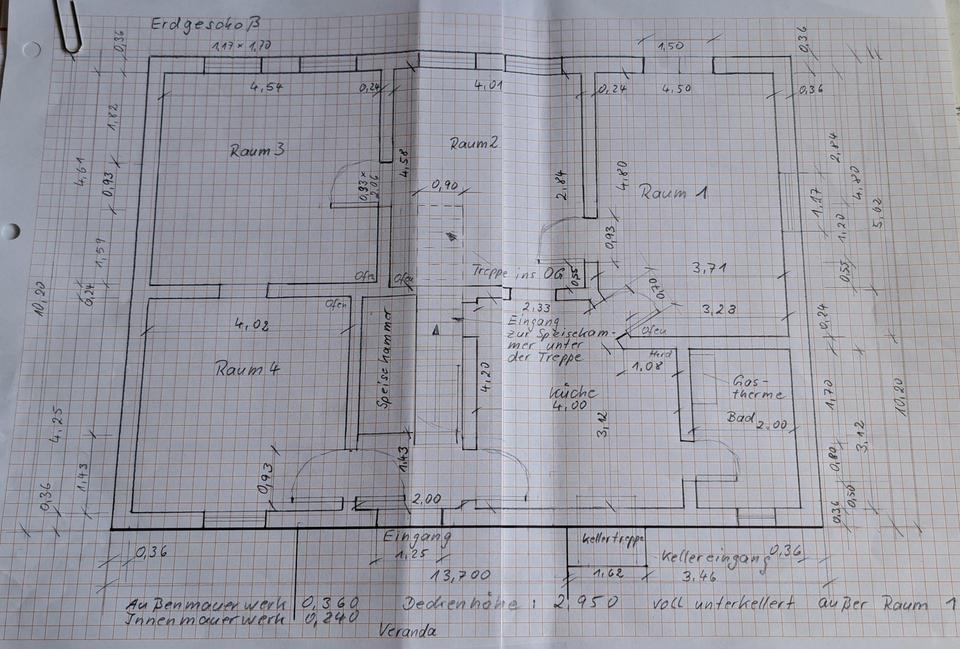 Erdgeschoß
0,36
1,17 x 1,70
1,50
0,36
4,54
0,24
4,01
0,24
4,50
0,36
1,82
4,61
0,93
1,59
0,24
10,20
Raum 3
4,58
Raum 2
2,84
4,80
Raum 1
2,84
4,80
5,02
1,17
1,20
0,55
0,93 x
2,06
0,90
0,93
Ofen
Ofen
Treppe ins OG
0,55
3,71
0,70
3,23
0,24
Ofen
4,02
2,33
Eingang
zur Speisekam-
mer unter
der Treppe
Ofen
Herd
1,08
Raum 4
Speisekammer
4,20
Küche
4.00
3,12
Gas-
therme
Bad
2.00
1,70
3,12
10,20
0,80
0,50
0,36
4,25
1,43
0,36
0,93
1,43
2,00
0,36
Eingang
1,25
13,700
Kellertreppe
1,62
Kellereingang
3,46
0,36
Außenmauerwerk 0,360
Innenmauerwerk 0,240
Deckenhöhe: 2,950 voll unterkellert außer Raum 1
Veranda